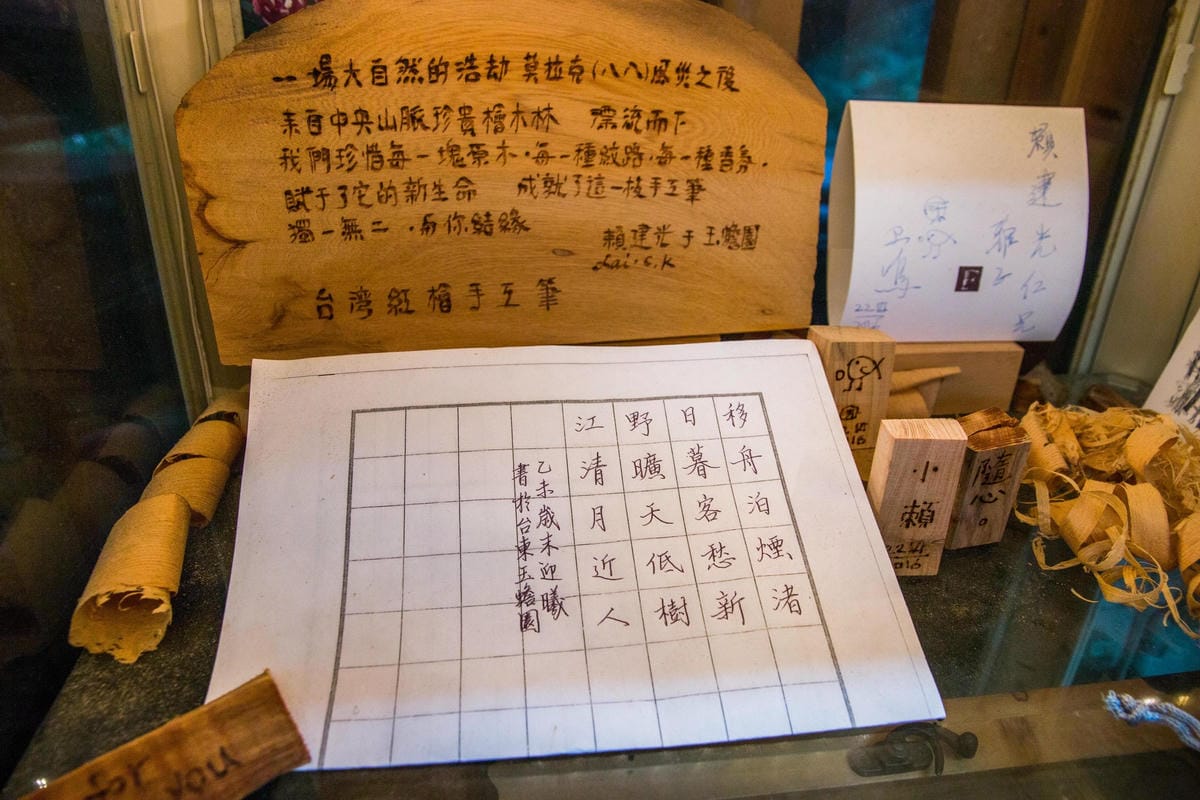 一場大自然的浩劫 莫拉克(八八)風災之後
來自中央山脈珍貴檜木林 漂流而下
我們珍惜每一塊原木·每一種紋路·每一種香氣.
賦于了它的新生命 成就了這一枝手工筆
獨一無二.與你結緣
賴建光于玉蟾園
Lai.S.K
台灣紅檜手工筆
賴建光仁兄
雅正
移舟泊煙渚
日暮客愁新
野曠天低樹
江清月近人
乙未歲末迎曦
書於台東玉蟾園
小賴
隨心。
for you